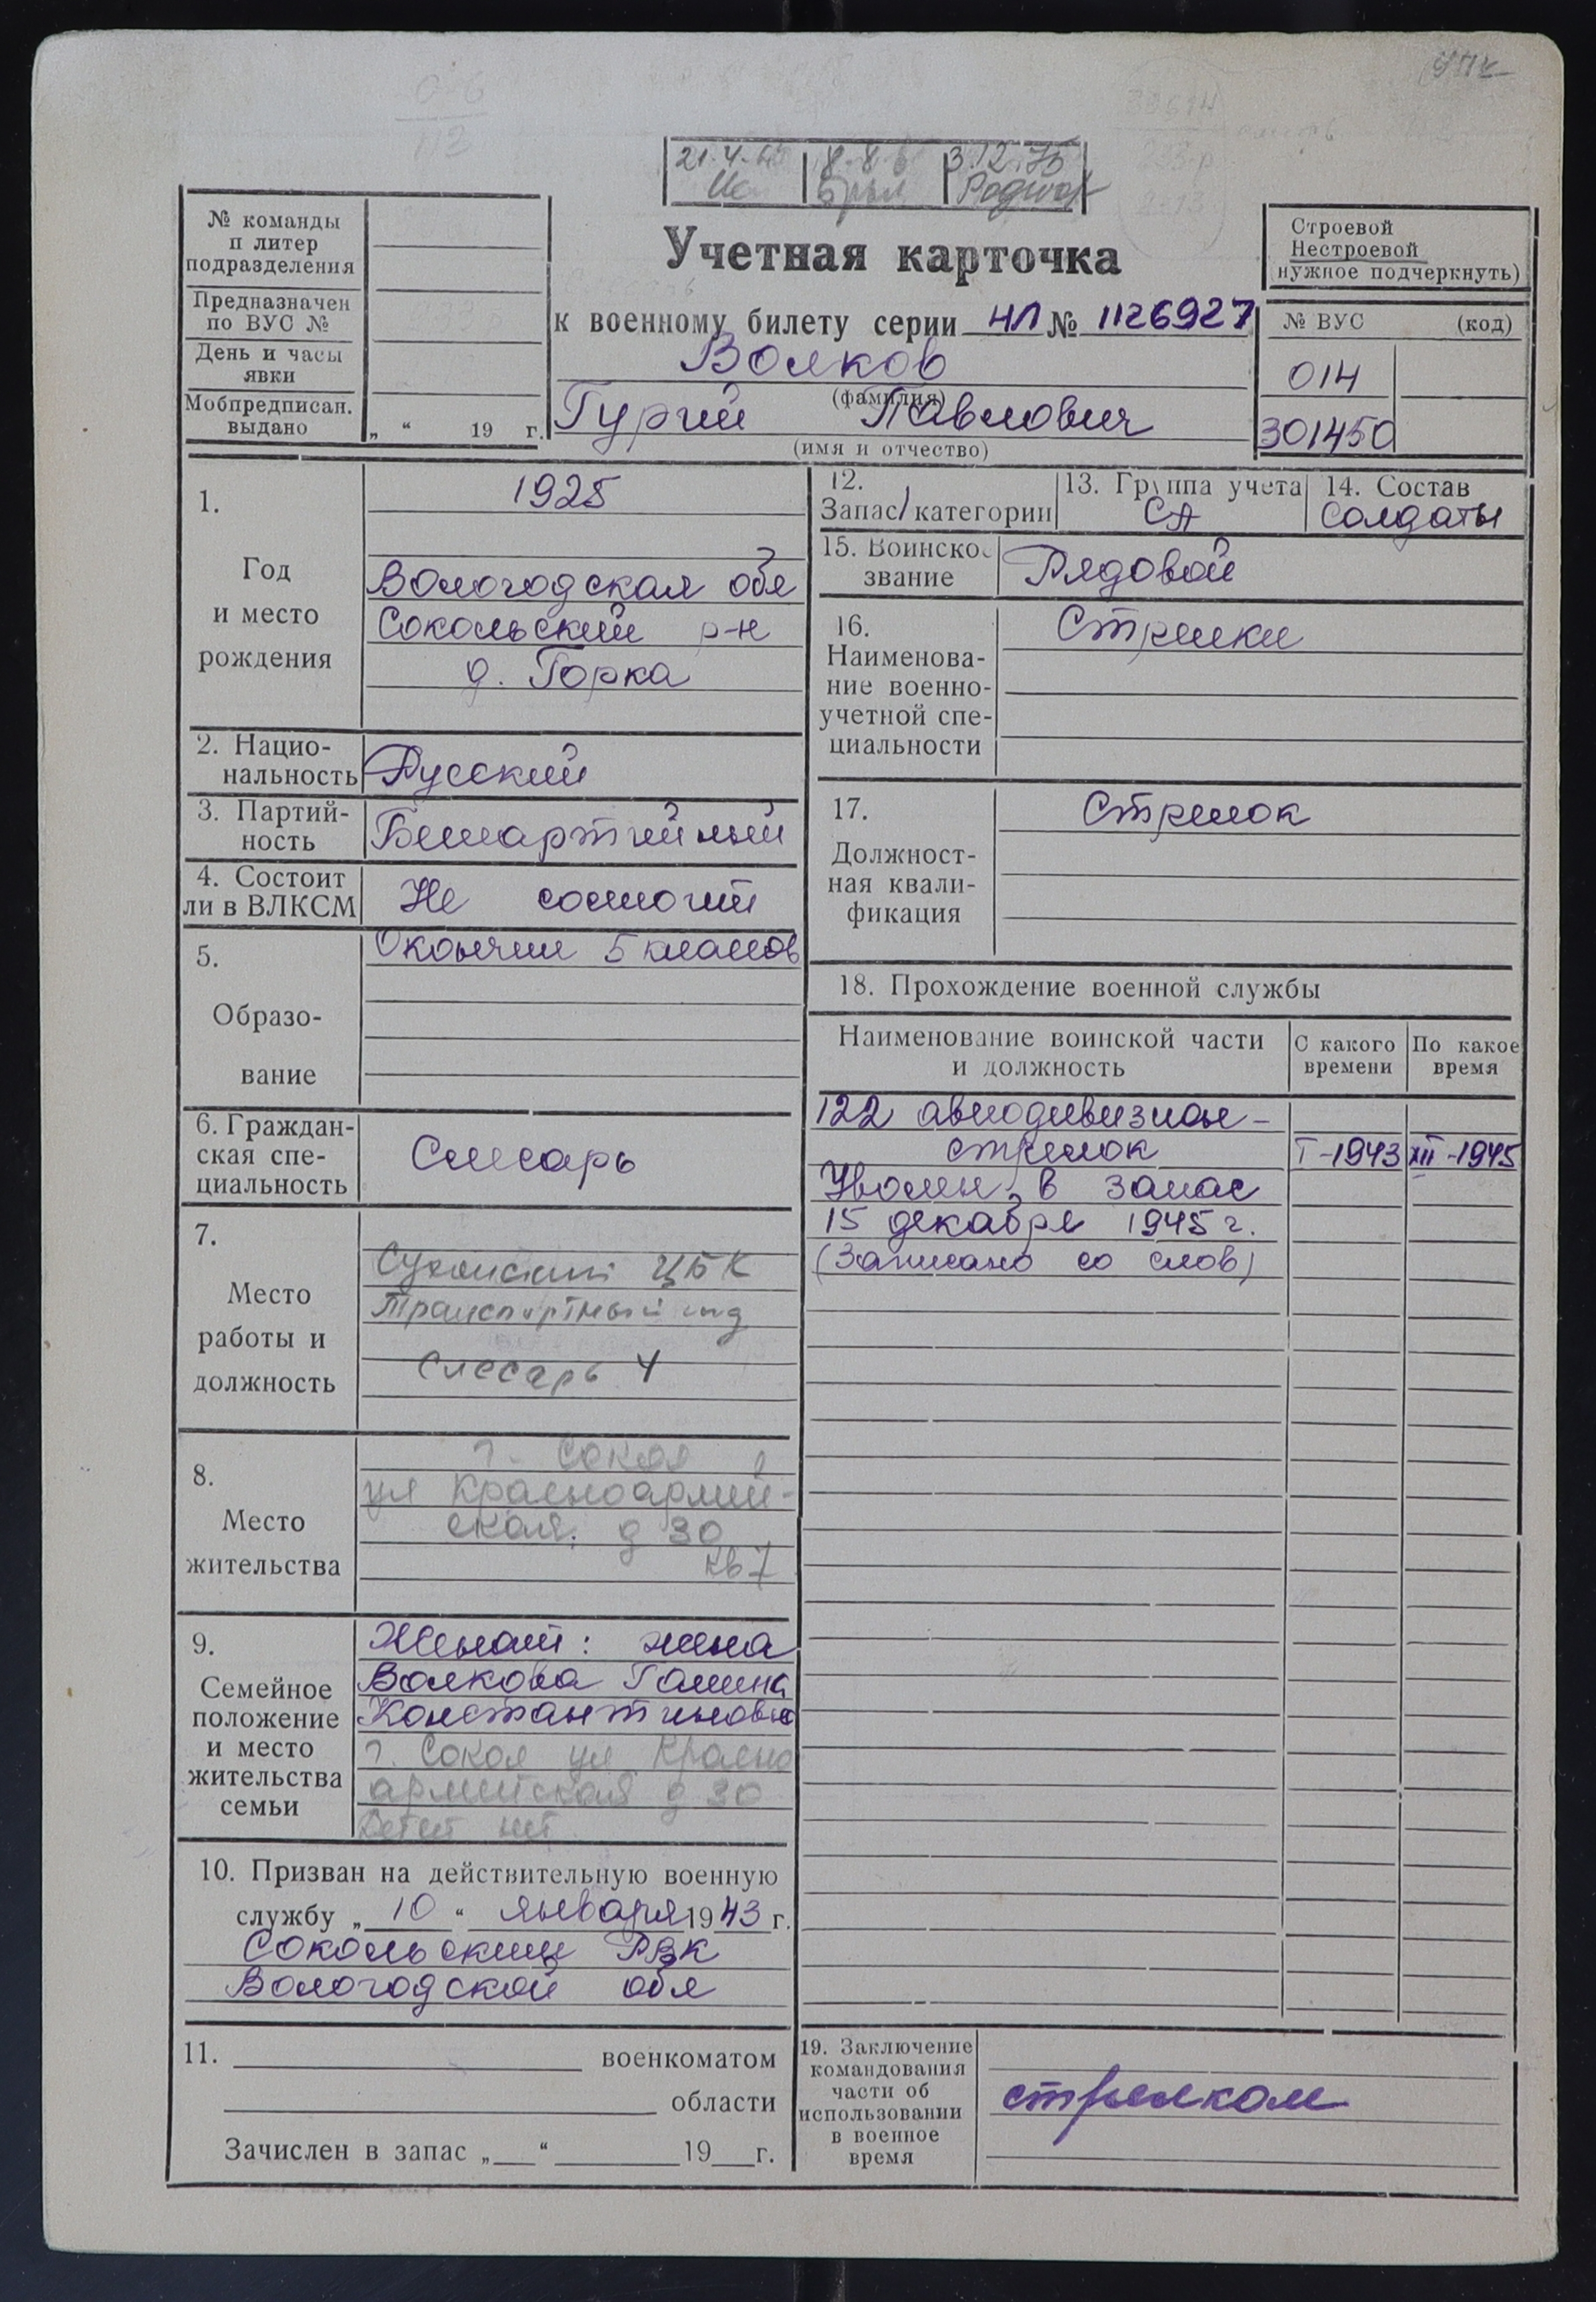 21.4.
8.8.6
3.12.75
№ команды
п литер
подразделения
Предназначен
по ВУС №
День и часы
явки
Мобпредписан.
выдано
„ “ 19 г.
Учетная карточка
к военному билету серии НЛ № 1126927
Волков
(фамилия)
Гурий Павлович
(имя и отчество)
Строевой
Нестроевой
нужное подчеркнуть)
№ ВУС (код)
014
301450
1.
Год
и место
рождения
1925
Вологодская обл
Сокольский р-н
д. Горка
2. Нацио-
нальность
Русский
3. Партий-
ность
Беспартийный
4. Состоит
ли в ВЛКСМ
Не состоит
5.
Образо-
вание
Окончил 5 классов
6. Граждан-
ская спе-
циальность
Слесарь
7.
Место
работы и
должность
Сухонский ЦБК
Транспортный
слесарь 4
8.
Место
жительства
г. Сокол
ул Красноармей-
ская, д 30
кв 7
9.
Семейное
положение
и место
жительства
семьи
Женат: жена
Волкова Галина
Константиновна
г. Сокол ул Красно
армейская д 30
Детей нет
10. Призван на действительную военную
службу „ 10 “ января 1943 г.
Сокольским РВК
Вологодской обл
11. военкоматом
области
Зачислен в запас „ “ 19 г.
12.
Запас/категории
13. Группа учета
СА
14. Состав
Солдаты
15. Воинско
звание
Рядовой
16.
Наименова-
ние военно-
учетной спе-
циальности
Стрелки
17.
Должност-
ная квали-
фикация
Стрелок
18. Прохождение военной службы
Наименование воинской части
и должность
С какого
времени
По какое
время
122 авиодивизион -
стрелок I-1943 XII-1945
Уволен в запас
15 декабря 1945 г.
(Записано со слов)
19. Заключение
командования
части об
использовании
в военное
время
стрелком